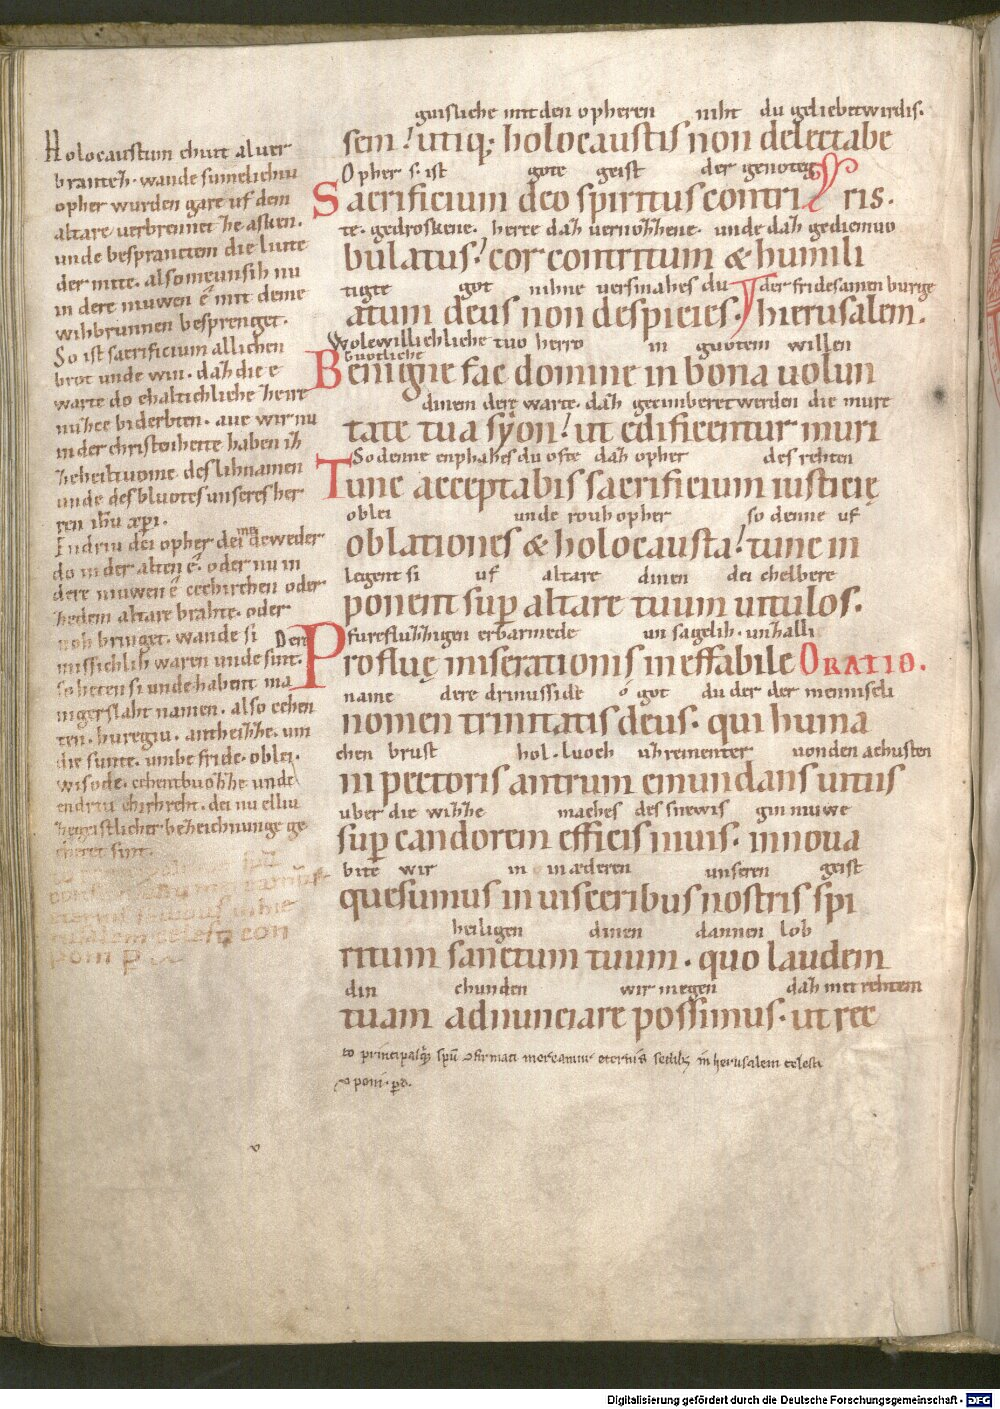 Holocaustum chutt al uer
brantez. wande sumelichiu
opher wurden gare uf dem
altare uerbrennet ze asken.
unde besprancten die liute
der mite. also me unsih nu
in dere niuwen ē mit deme
wihbrunnen besprenget.
So ist sacrificium allichen
brot unde win. daz die e
warte do ehaltichliche heire
nuzze biderbten. aue wir nu
in der christenheite haben iz
ze heiltuome des lihnamen
unde des bluotes unseres her
ren ihu xpi.
Endriu dei opher dei me deweder
do in der alten ē. oder nu in
dere niuwen ē ce chirchen oder
zedem altare brahte. oder
noh bringet. wande si
missichlih waren unde sint.
so heten si unde habent ma
nigerslaht namen. also cehen
ten. buregiu. antheizze. um
die sunte. umbe fride. oblei.
wisode. cehentbuozze unde
endriu chirhreht. dei nu elliu
ze geistlicher bezeichnunge ge
cheret sint.
guisliche mit den opheren niht du geliebet wirdis.
sem! utiq; holocaustis non delectabe
Opher s. ist gote geist der genoteg
Sacrificium deo spiritus contri
ris.
te. gedroskene. herze daz uernozzene. unde daz gediemuo
bulatus! cor contritum & humili
tigte got nihne uersmahes du der fridesamen burge
atum deus non despicies. hierusalem.
Wolewillichliche tuo herro in guotem willen
guotliche
Benigne fac domine in bona uolun
dinem dere warte. daz gecimberet werden die mure
tate tua syon! ut edificentur muri
So denne enphahes du ofte daz opher des rehten
Tunc acceptabis sacrificium iusticię
oblei unde rouhopher so denne uf
oblationes & holocausta! tunc in
legent si uf altare dinen dei chelbere
ponent sup altare tuum uitulos.
Dere furefluzzigen erbarmede un sagelih. unzalli
Profluę miserationis ineffabile ORATIO.
name dere drinusside ó got du der der mennischi
nomen trinitatis deus. qui huma
chen brust hol. luoch uhrementer uonden achusten
ni pectoris antrum emundans uitiis
uber die wizze maches des snewis gin niuwe
sup candorem efficis niuis. innoua
bite wir in inæderen unseren geist
quesumus in uisceribus nostris spi
heiligen dinen dannen lob
ritum sanctum tuum. quo laudem
din chunden wir megen daz mit rehtem
tuam adnunciare possimus. ut rec
to principaliq; spū confirmati mereamur eternis sedibz in hierusalem celesti
componi. p d.